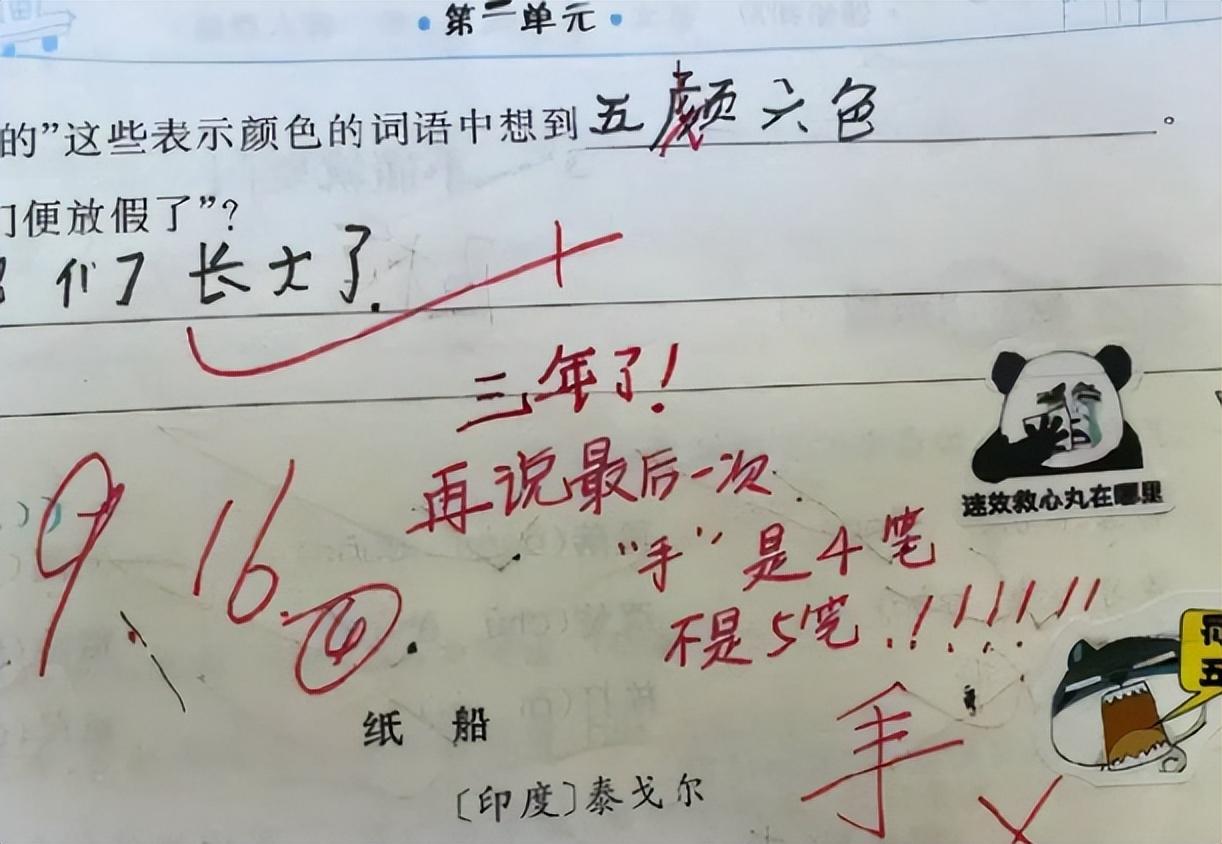 · 第二单元 ·
的”这些表示颜色的词语中想到 五颜六色 。
们便放假了”?
们了 长大了.
三年了!
再说最后一次.
“手”是4笔
不是5笔.!!!!!!
速效救心丸在哪里
9.16. ④.
手
纸 船
〔印度〕泰戈尔
五